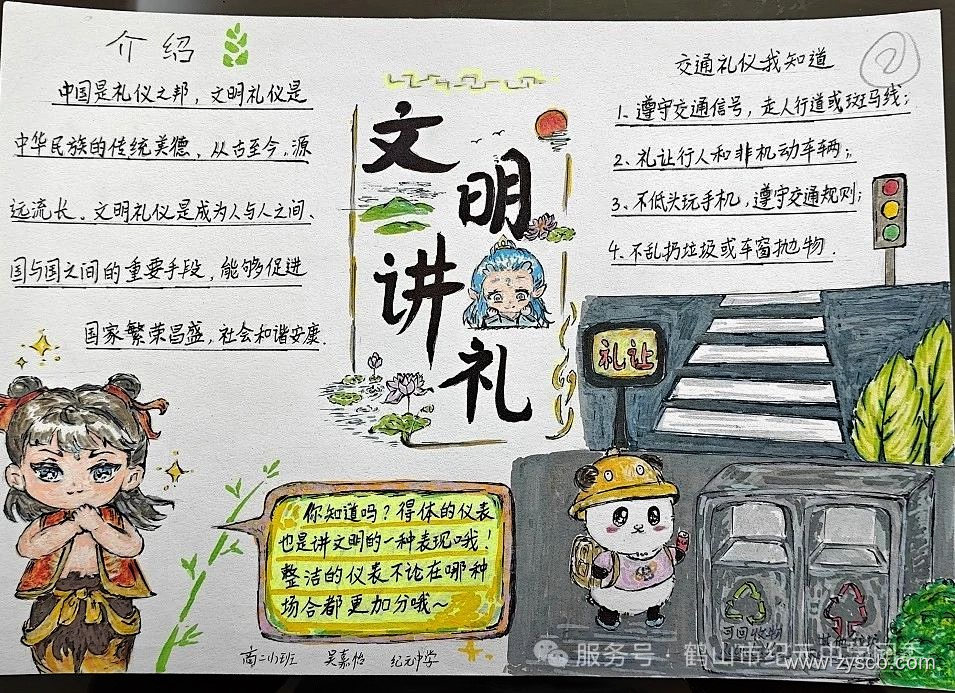 介绍
中国是礼仪之邦，文明礼仪是
中华民族的传统美德、从古至今，源
远流长。文明礼仪是成为人与人之间、
国与国之间的重要手段，能够促进
国家繁荣昌盛，社会和谐安康.
文明讲礼
交通礼仪我知道
2
1、遵守交通信号，走人行道或斑马线；
2、礼让行人和非机动车车辆；
3、不低头玩手机，遵守交通规则；
4、不乱扔垃圾或车窗抛物.
礼让
你知道吗？得体的仪表
也是讲文明的一种表现哦！
整洁的仪表不论在哪种
场合都更加分哦~
可回收物
高二小班 吴嘉怡 纪元中学
服务号·鹤山市纪元中学
www.zyscb.com